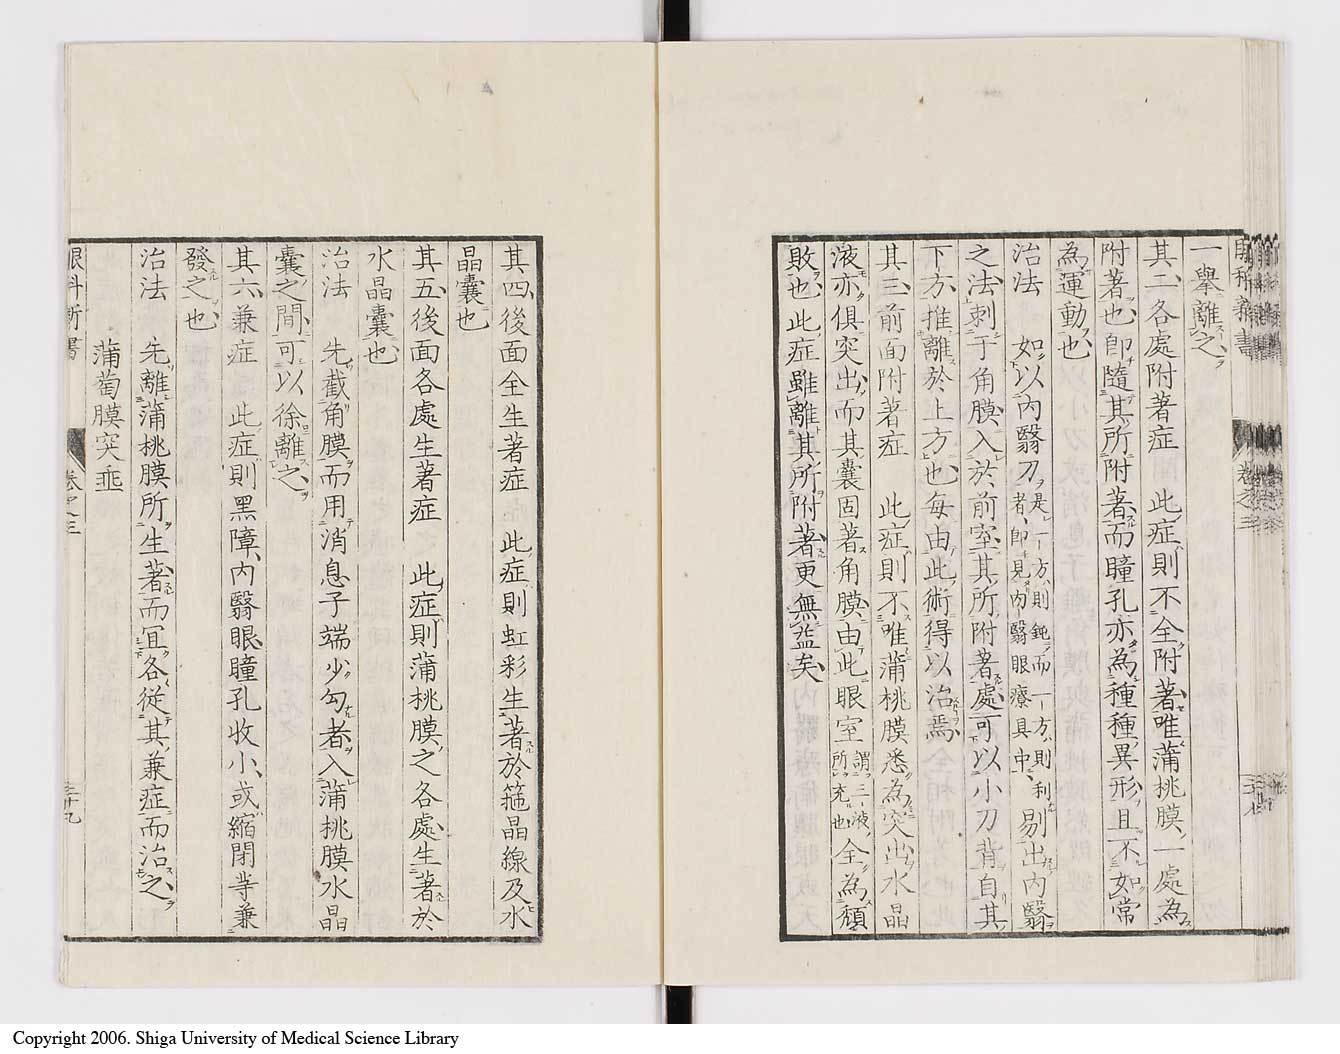 眼科新書
卷之三
一擧離之
其二、各處附著症 此症則不全附著、唯蒲桃膜一處為
附著也、卽隨其所附著、而瞳孔亦為種種異形、且不如常
為運動也
治法 如以內翳刀是一方則鈍而一方則利者、卽見內翳眼療具中、剔出內翳
之法、刺于角膜、入於前室、其所附著處、可以小刀背自其
下方推離於上方也、每由此術得以治焉、
其三、前面附著症 此症則不唯蒲桃膜悉為突出、水晶
液亦俱突出、而其囊固著角膜、由此眼室謂三液所充也全為頹
敗也、此症雖離其所附著更無益矣、
其四、後面全生著症 此症則虹彩生著於箍晶線及水
晶囊也
其五、後面各處生著症 此症則蒲桃膜之各處生著於
水晶囊也
治法 先截角膜而用消息子端少勾者、入蒲桃膜水晶
囊之間、可以徐離之、
其六、兼症 此症則黑障、內翳眼、瞳孔收小、或縮閉等兼
發之也
治法 先離蒲桃膜所生著、而宜各從其兼症而治之、
蒲萄膜突垂
眼科新書
卷之三
三十九
Copyright 2006. Shiga University of Medical Science Library